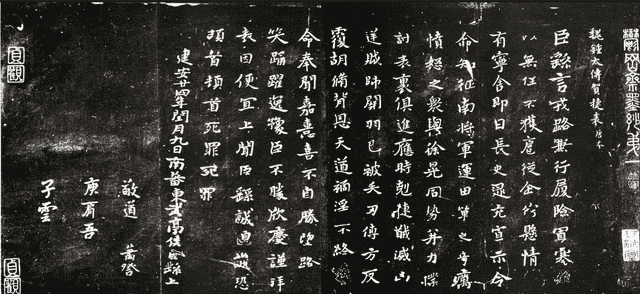 鬱岡齋墨妙第一
魏鍾太傅賀捷表唐本
臣繇言戎路兼行履險冒寒臣
以無任不獲扈從企佇懸情
有寧舍即日長史逯充宣示令
命知征南將軍運田單之奇厲
憤怒之衆與徐晃同勢并力撲
討表裏俱進應時剋捷馘滅凶
逆賊帥關羽已被矢刃傅方反
覆胡脩背恩天道禍淫不終
命奉聞嘉憙喜不自勝望路
笑踊躍逸豫臣不勝欣慶謹拜
表因便宜上聞臣繇誠惶誠恐
頓首頓首死罪死罪
建安廿四年閏月九日南蕃東武亭侯臣繇上
敬道
庾肩吾
子雲
貞觀
貞觀